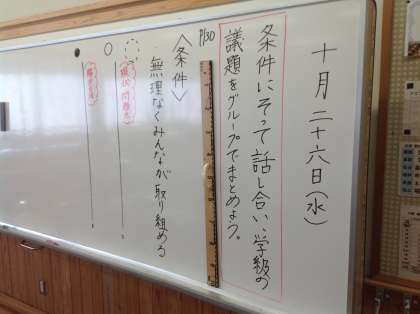 十月二十六日(水)
条件にそって話し合い、学級の
議題をグループでまとめよう。
P/30
〈条件〉
・無理なくみんなが取り組める